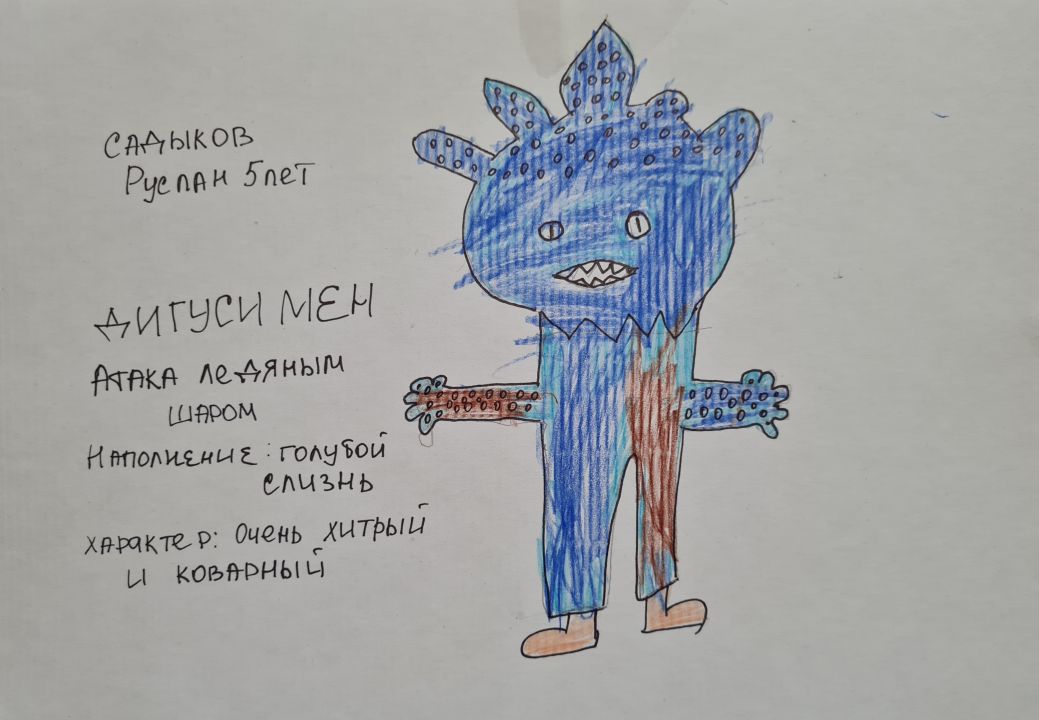 САДЫКОВ
РУСЛАН 5 ЛЕТ
ДИГУСИ МЕН
АТАКА ЛЕДЯНЫМ
ШАРОМ
НАПОЛНЕНИЕ: ГОЛУБОЙ
СЛИЗНЬ
ХАРАКТЕР: ОЧЕНЬ ХИТРЫЙ
И КОВАРНЫЙ